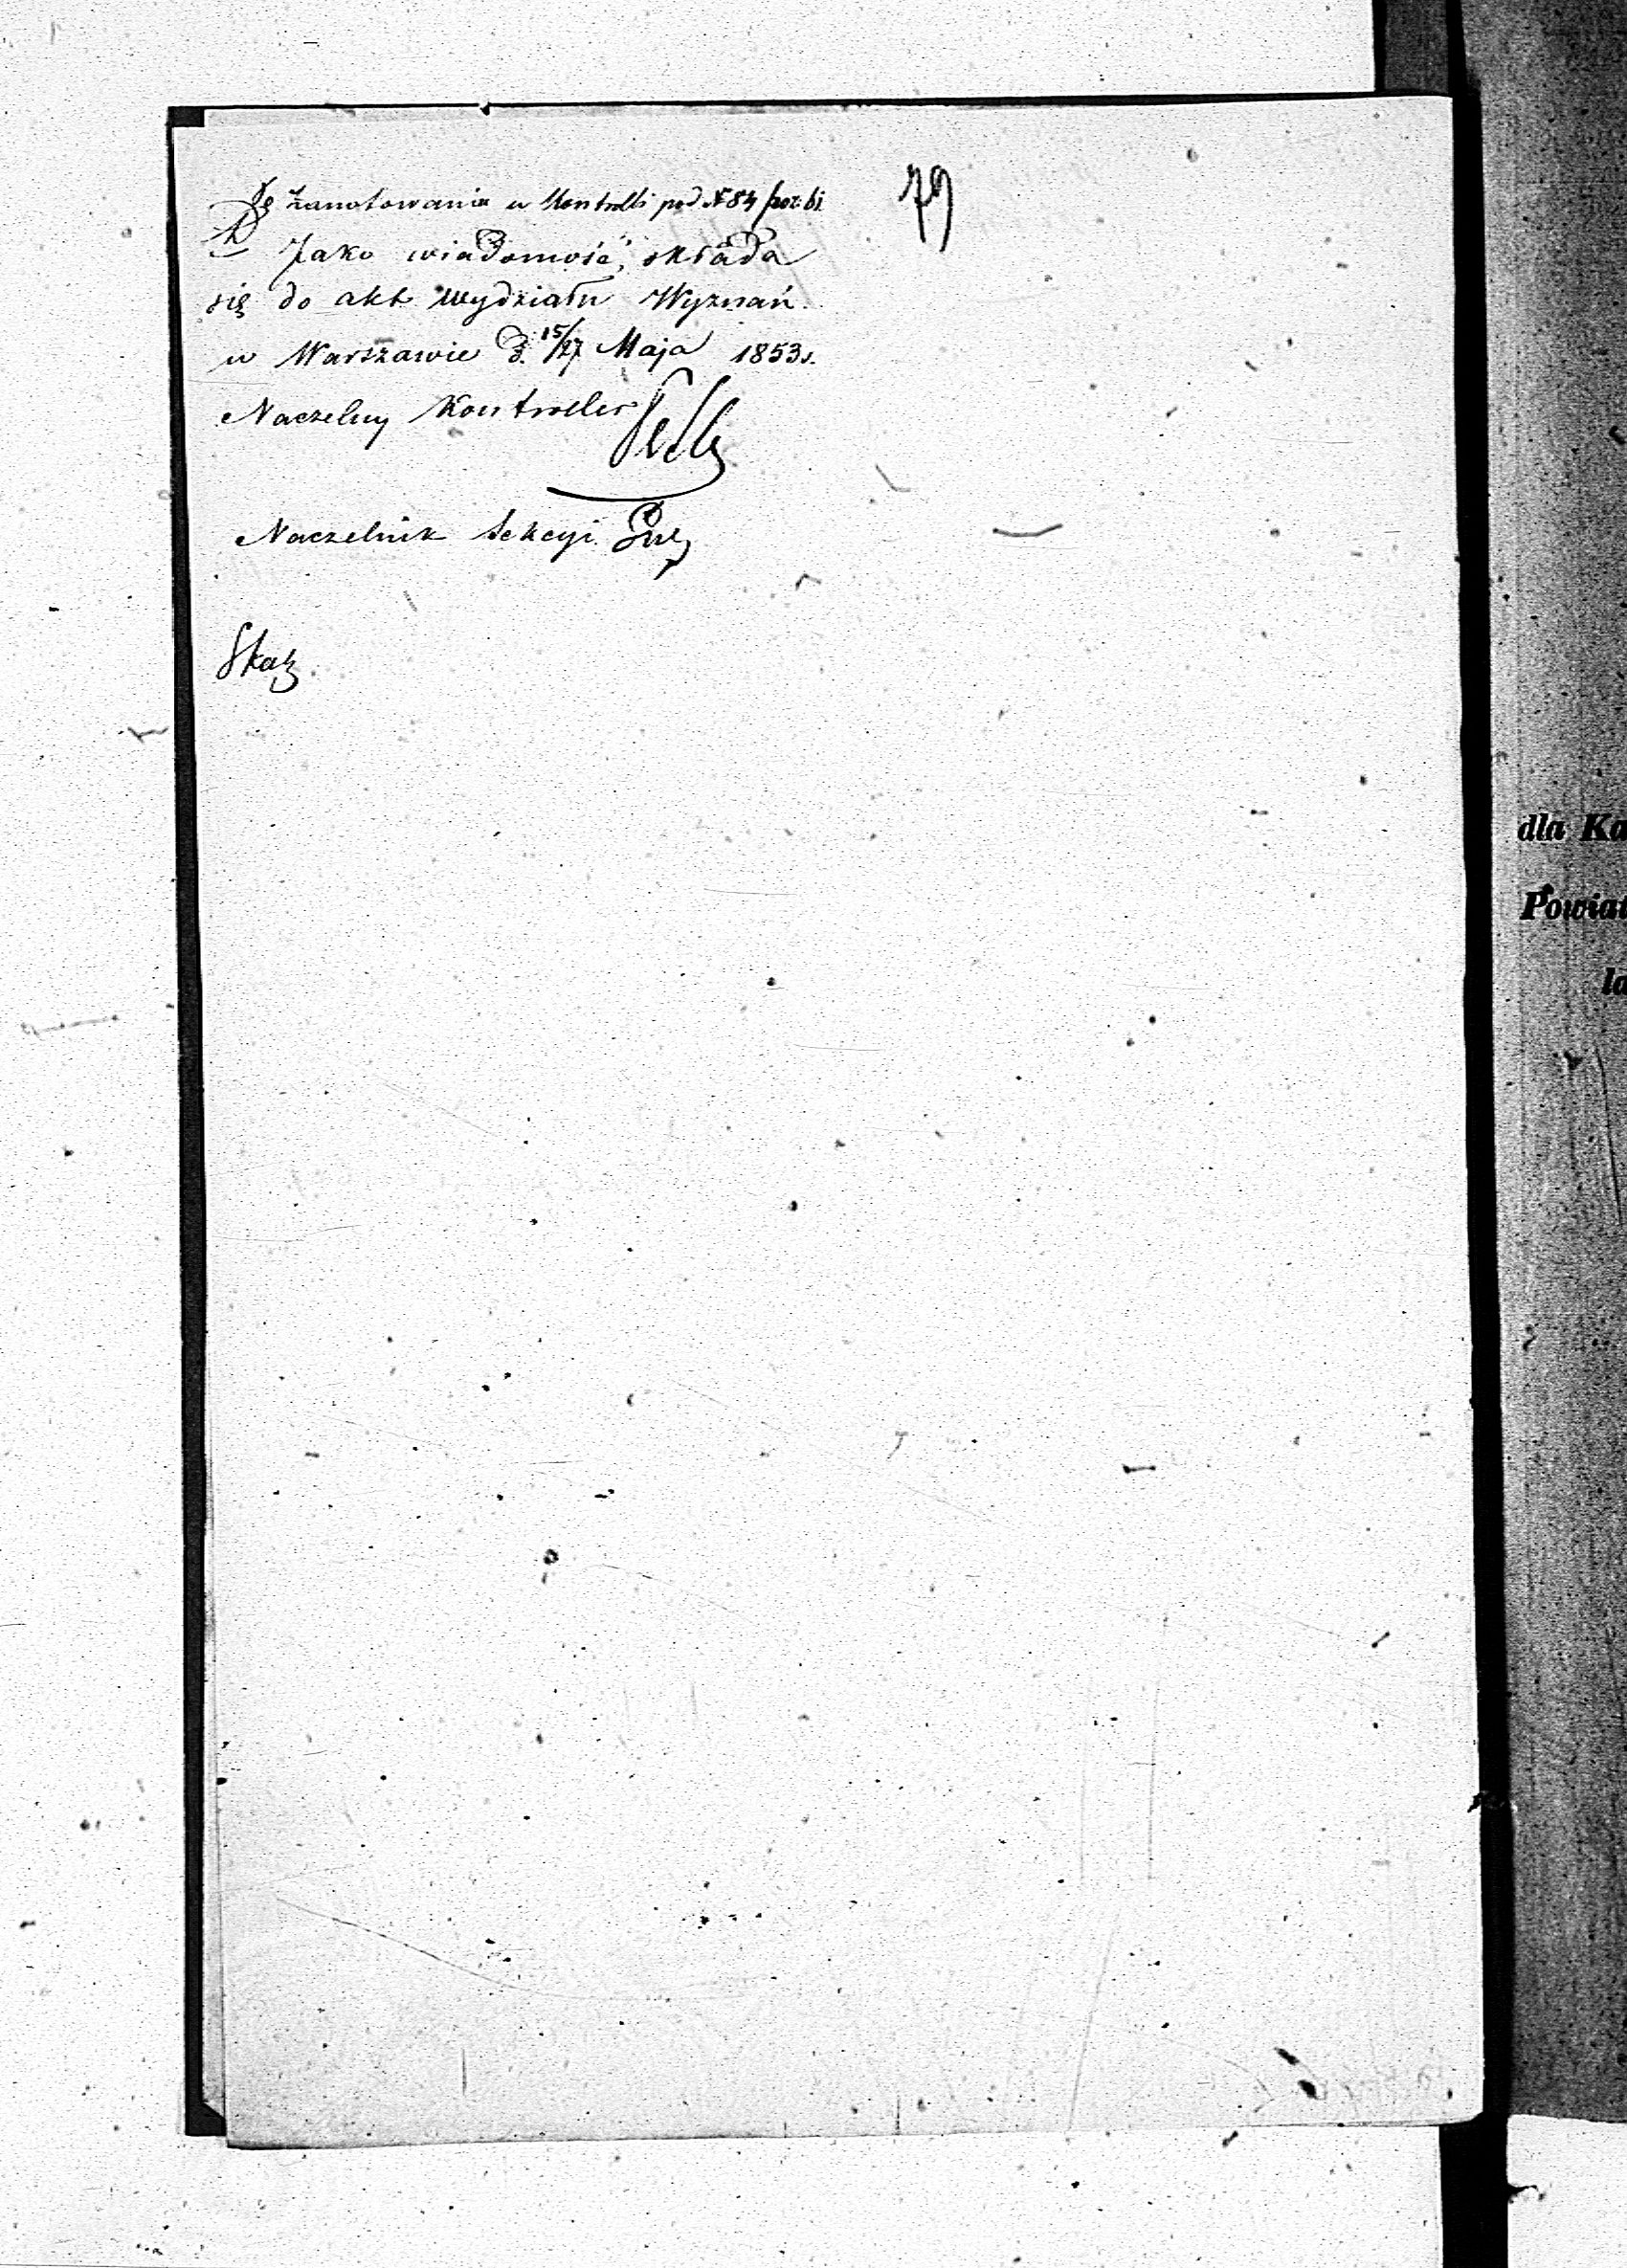 79
zanotowaniu w Kontrolli pod № 84 poz: 61.
Jako wiadomość, składa
się do akt wydziału Wyznań.
w Warszawie d. 15/27 Maja 1853 r.
Naczelny Kontroller
Naczelnik Sekcyi
dla Ka
Powiat
la